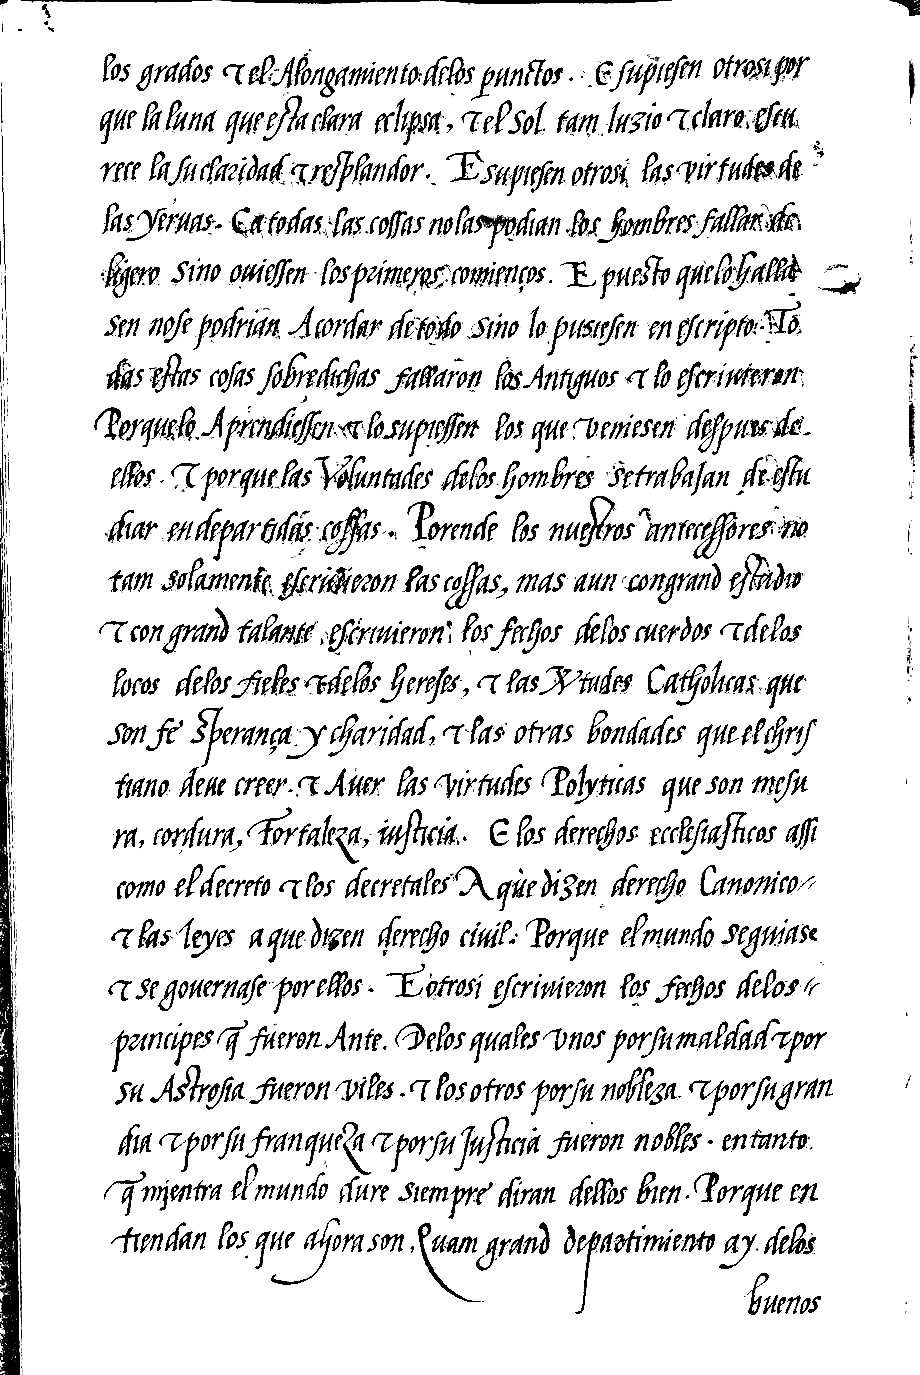 los grados & el Alongamiento delos punctos. E supiesen otrosi por
que la luna que esta clara eclipsa, & el Sol tam luzio & claro escu
rece la su claridad & resplandor. E supiesen otrosi las virtudes de
las yeruas. Ca todas las cossas no las podian los hombres fallar de
ligero sino ouiessen los primeros comienços. E puesto que lo hallas
sen no se podrian Acordar de todo sino lo pusiesen en escripto. To
das estas cosas sobredichas fallaron los Antiguos & lo escriuieron
Porque lo Aprendiessen & lo supiessen los que veniesen despues de
ellos. & porque las Voluntades delos hombres se trabajan de estu
diar en departidas cossas. Porende los nuestros antecessores no
tam solamente escriuieron las cossas, mas aun con grand estudio
& con grand talante escriuieron los fechos delos cuerdos & delos
locos delos fieles & delos hereses, & las Vtudes Catholicas que
son fe sperança y charidad, & las otras bondades que el chris
tiano deue creer. & Auer las virtudes Polyticas que son mesu
ra, cordura, Fortaleza, iusticia. E los derechos ecclesiasticos assi
como el decreto & los decretales A que dizen derecho Canonico
& las leyes a que dizen derecho civil. Porque el mundo seguiase
& se gouernase por ellos. E otrosi escriuieron los fechos delos
principes q̃ fueron Ante. Delos quales vnos por su maldad & por
su Astrosia fueron viles. & los otros por su nobleza & por su gran
dia & por su franqueza & por su Justicia fueron nobles. en tanto
q̃ mientra el mundo dure siempre diran dellos bien. Porque en
tiendan los que ahora son. Quam grand departimiento ay delos
buenos